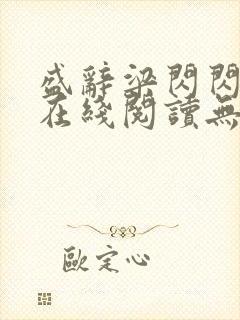 盛辭梁閃閃
在綫閱讀無
歐定心